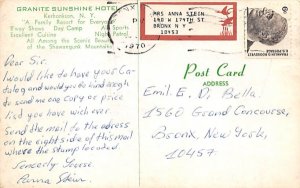 GRANITE SUNSHINE HOTEL
Kerhonkson, N. Y.
"A Family Resort for Every
3-way Shows Day Camp Sports
Excellent Cuisine Night Patrol
All Among the Scenic Grandeur
of the Shawangunk Mountains
N.Y.
P
1970
MRS ANNA STEIN
140 W 174TH ST
BRONX N Y
10453
FRANKLIN D. ROOSEVELT
U.S. POSTAGE
Post Card
ADDRESS
Dear Sir.
I would like do have your Ca-
dalog and would you do kind enogh
do send me one copy or price
lisd you have wich ever
Send the mail do the adress
on the eight side of this mail
where the stamp located
Sencerly Youse
Anna Stein
Emil E. Di Bella.
1560 Grand Concourse,
Bronx New York,
10457